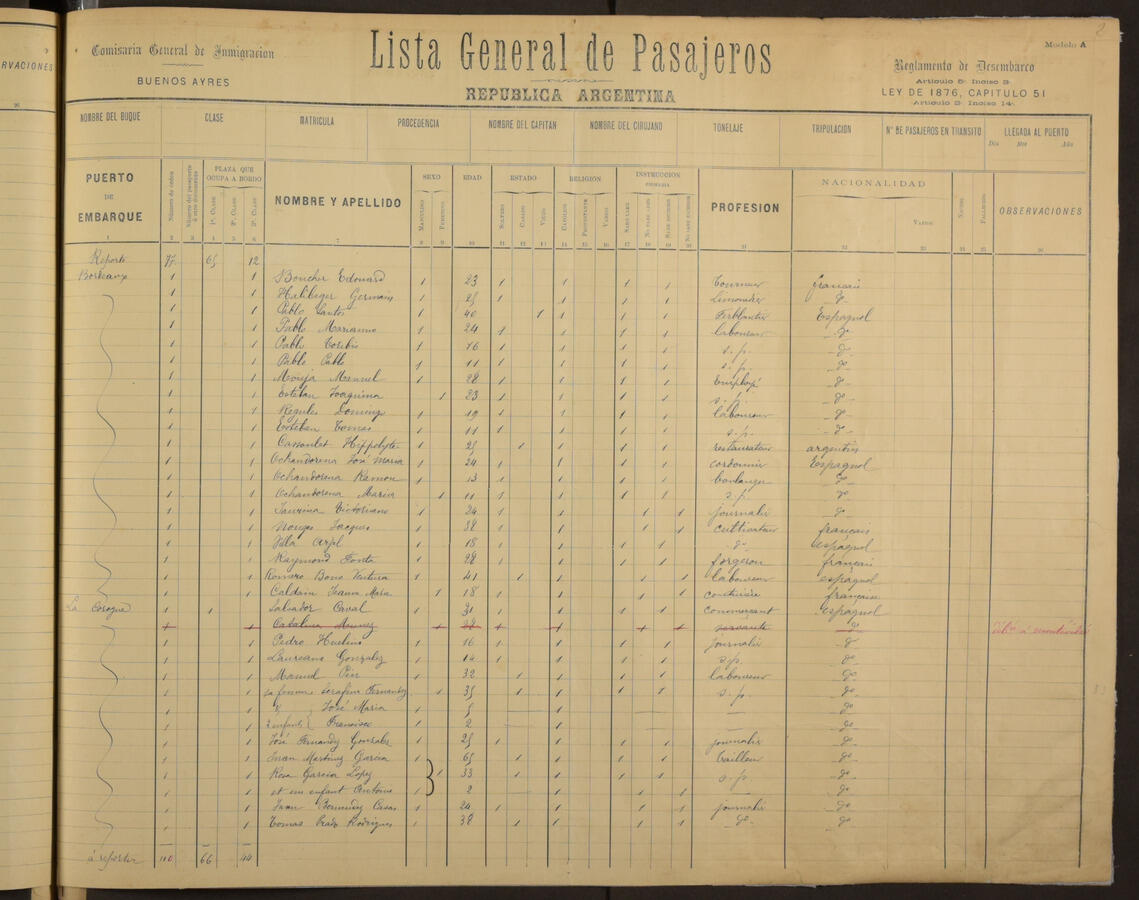 RVACIONES
26
2
Comisaria General de Inmigracion
BUENOS AYRES
Lista General de Pasajeros
REPUBLICA ARGENTINA
Modelo A
Reglamento de Desembarco
Articulo 5º Inciso 3º
LEY DE 1876, CAPITULO 51
Articulo 2º Inciso 14º
NOMBRE DEL BUQUE CLASE MATRICULA PROCEDENCIA NOMBRE DEL CAPITAN NOMBRE DEL CIRUJANO TONELAJE TRIPULACION Nº DE PASAJEROS EN TRANSITO LLEGADA AL PUERTO
Dia Mes Año
PUERTO DE EMBARQUE Número de órden PLAZA QUE OCUPA A BORDO 1ª CLASE 2ª CLASE 3ª CLASE NOMBRE Y APELLIDO SEXO MASCULINO FEMENINO EDAD ESTADO SOLTERO CASADO VIUDO RELIGIÓN CATOLICO PROTESTANTE VARIOS INSTRUCCION PRIMARIA PROFESION NACIONALIDAD VARIOS NACIDOS FALLECIDOS OBSERVACIONES
1 2 3 4 5 6 7 8 9 10 11 12 13 14 15 16 17 18 19 20 21 22 23 24 25 26
Reporte 97 65 12
Bordeaux 1 1 Boucher Edouard 1 23 1 1 1 1 Tourneur français
1 1 Germain 1 25 1 1 1 1 Limonadier dº
1 1 Pablo Santos 1 40 1 1 1 1 Ferblantier Espagnol
1 1 Pablo Marianno 1 24 1 1 1 1 laboureur dº
1 1 Pablo Toribio 1 16 1 1 1 1 s. p. dº
1 1 Pablo Pablo 1 11 1 1 1 1 s. p. dº
1 1 Manuel 1 28 1 1 1 1 Employé dº
1 1 Esteban Joaquina 1 23 1 1 1 1 s. p. dº
1 1 Regules Doming 1 19 1 1 1 1 laboureur dº
1 1 Esteban Tomas 1 11 1 1 1 1 s. p. dº
1 1 Cassoulet Hippolyte 1 25 1 1 1 1 restaurateur argentin
1 1 Ochandorena José Maria 1 24 1 1 1 1 cordonnier Espagnol
1 1 Ochandorena Ramon 1 13 1 1 1 1 boulanger dº
1 1 Ochandorena Maria 1 11 1 1 1 1 s. p. dº
1 1 Victoriano 1 24 1 1 1 1 journalier dº
1 1 Jacques 1 38 1 1 1 1 cultivateur français
1 1 Villa 1 18 1 1 1 1 dº espagnol
1 1 Raymond 1 28 1 1 1 1 forgeron français
1 1 Romero Bono Ventura 1 41 1 1 1 1 laboureur espagnol
1 1 Jeanne Maria 1 18 1 1 1 1 couturière française
La Corogne 1 1 Salvador Caval 1 31 1 1 1 1 commerçant espagnol
Catalina Munez 28 servante dº
1 1 Pedro 1 16 1 1 1 1 journalier dº
1 1 Laureano Gonzalez 1 14 1 1 1 1 s. p. dº
1 1 Manuel 1 32 1 1 1 1 laboureur dº
1 1 sa femme Serafina Fernandez 1 35 1 1 1 1 s. p. dº
1 1 José Maria 1 5 1 1 dº
1 1 2 enfants Francisco 1 2 1 1 dº
1 1 José Fernandez Gonzalez 1 25 1 1 1 1 journalier dº
1 1 Juan Martinez Garcia 1 65 1 1 1 1 tailleur dº
1 1 Rosa Garcia Lopez 1 33 1 1 1 1 s. p. dº
1 1 et un enfant Antonio 2 1 1 1 dº
1 1 Juan Bermudez Casas 1 24 1 1 1 1 journalier dº
1 1 Tomas Prado Rodriguez 1 38 1 1 1 1 dº dº
à reporter 110 66 44